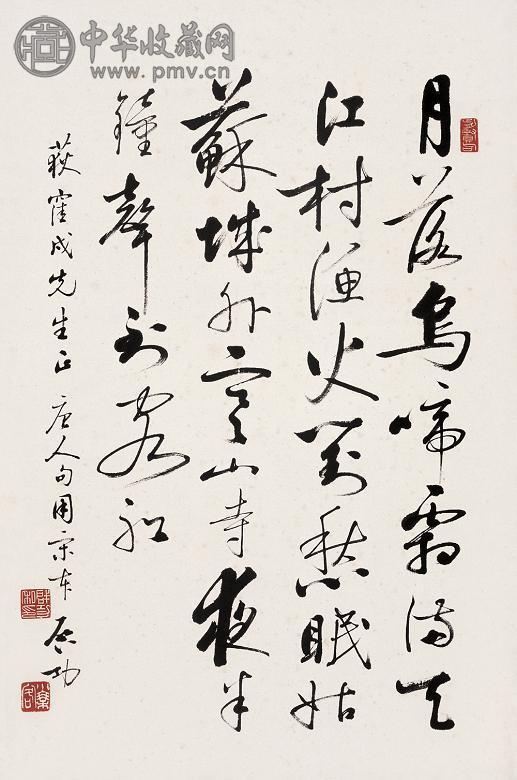 月落烏啼霜满天
江村渔火对愁眠姑
蘇城外寒山寺夜半
鐘聲到客船
荻窪成先生正唐人句用宋本 启功
中华收藏网
www.pmv.cn